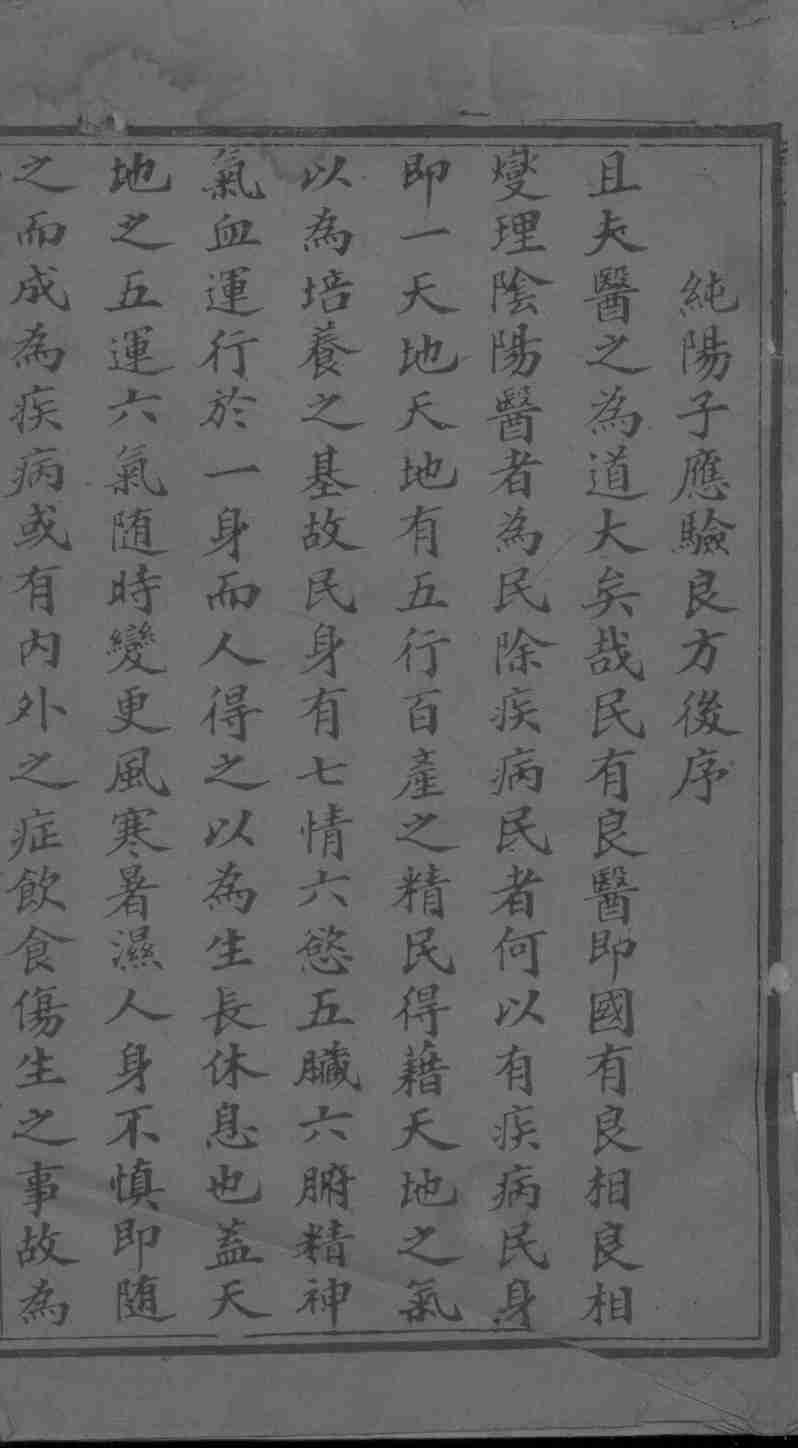 純陽子應驗良方後序
且夫醫之為道大矣哉民有良醫即國有良相良相
燮理陰陽醫者為民除疾病民者何以有疾病民身
即一天地天地有五行百產之精民得藉天地之氣
以為培養之基故民身有七情六慾五臟六腑精神
氣血運行於一身而人得之以為生長休息也蓋天
地之五運六氣隨時變更風寒暑濕人身不慎即隨
之而成為疾病或有內外之症飲食傷生之事故為